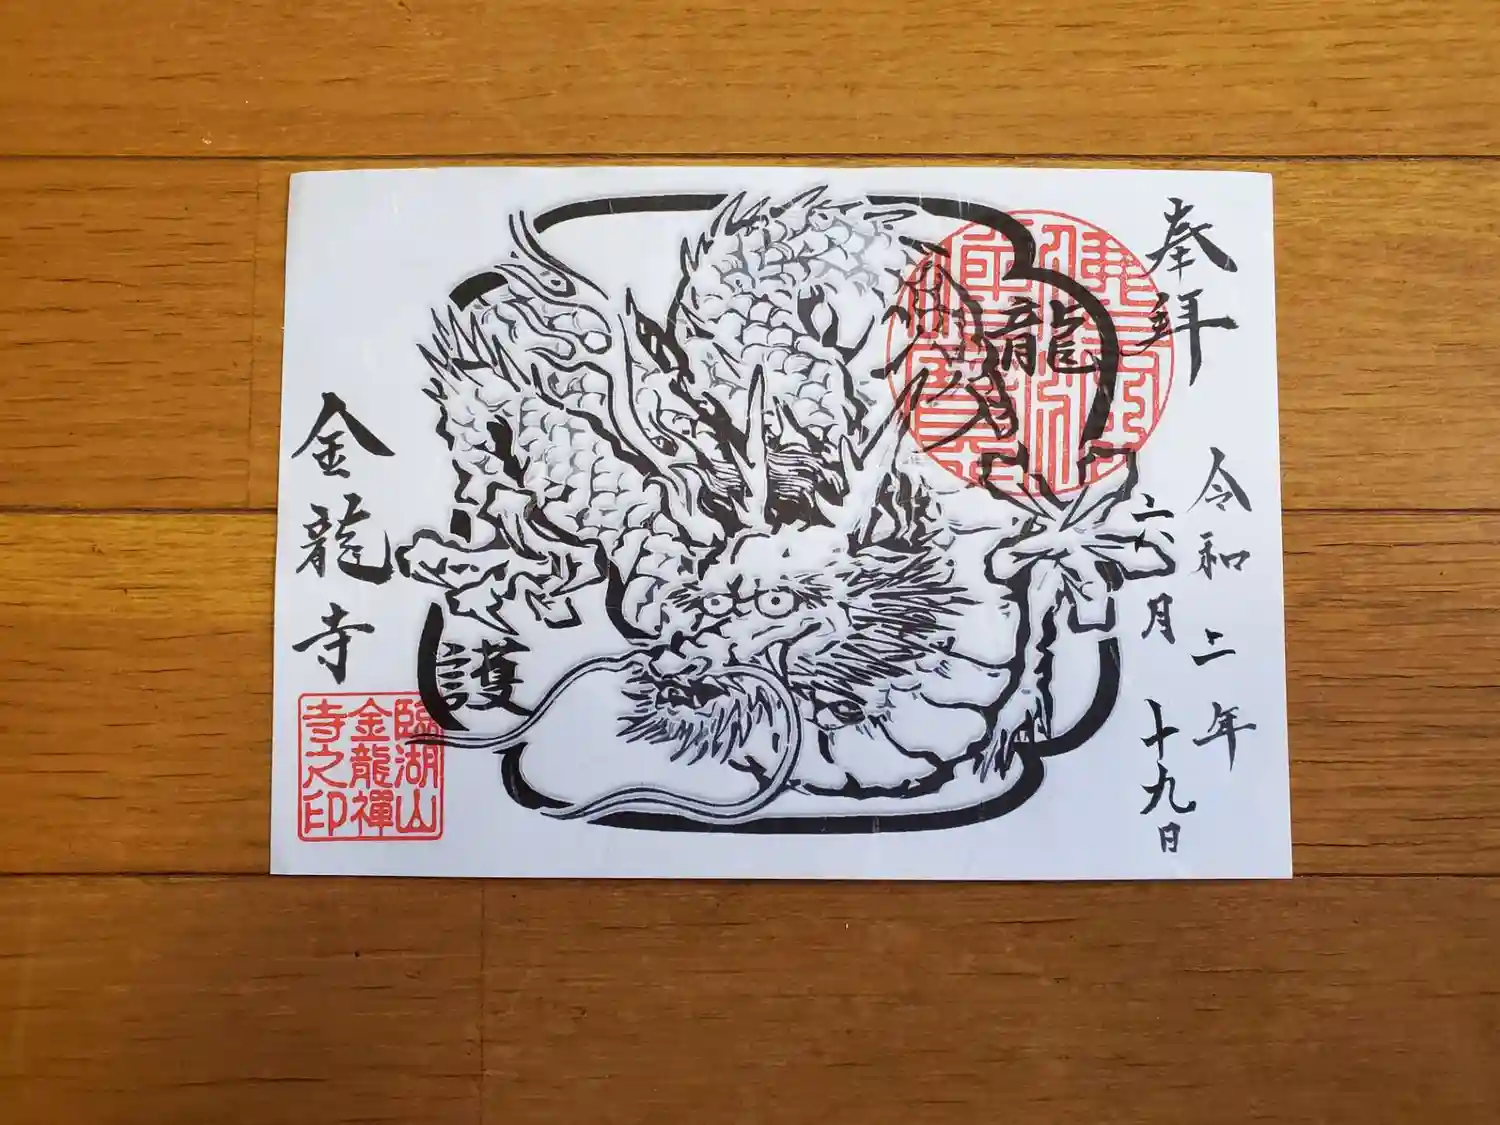 奉拝
令和二年
六月十九日
龍
護
金龍寺
臨湖山
金龍禪
寺之印